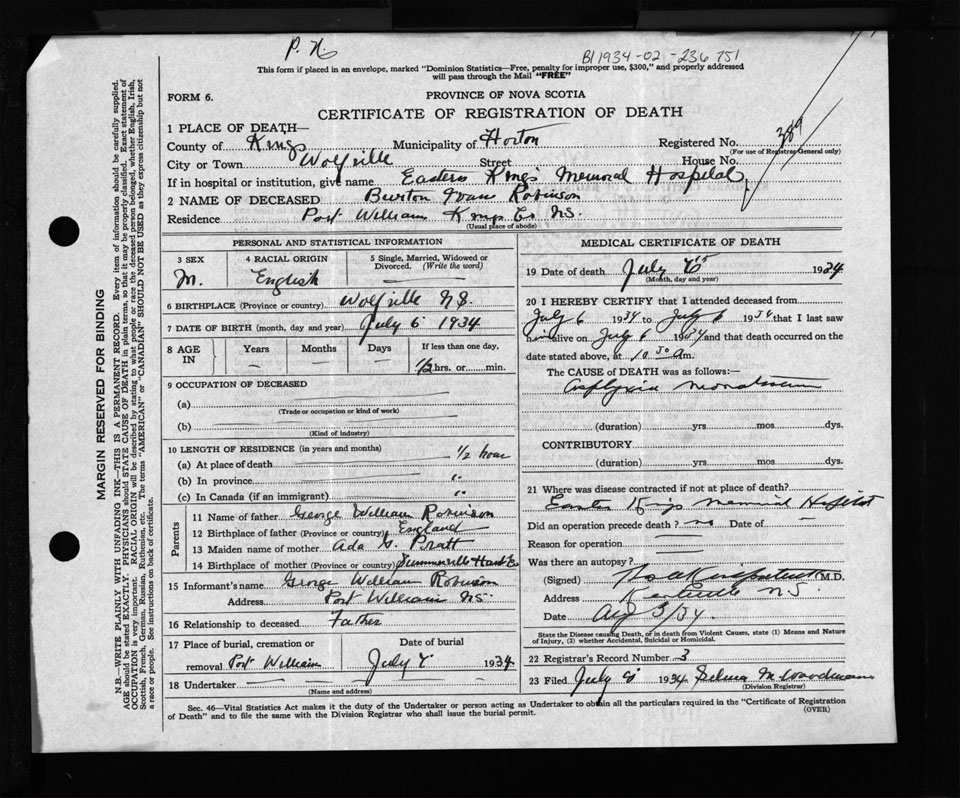 P. N.
B1 1934-02-236 751
This form if placed in an envelope, marked "Dominion Statistics—Free, penalty for improper use, $300," and properly addressed
will pass through the Mail "FREE"
FORM 6.
PROVINCE OF NOVA SCOTIA
CERTIFICATE OF REGISTRATION OF DEATH
1 PLACE OF DEATH—
County of Kings Municipality of Horton Registered No. 389
(For use of Registrar General only)
City or Town Wolfville Street House No.
If in hospital or institution, give name Eastern Kings Memorial Hospital
2 NAME OF DECEASED Burton Robinson
Residence Port William Kings Co NS.
(Usual place of abode)
PERSONAL AND STATISTICAL INFORMATION
3 SEX 4 RACIAL ORIGIN 5 Single, Married, Widowed or
Divorced. (Write the word)
M. English —
6 BIRTHPLACE (Province or country) Wolfville N.S.
7 DATE OF BIRTH (month, day and year) July 6 1934
8 AGE IN Years Months Days If less than one day,
— — — 1/2 hrs. or min.
9 OCCUPATION OF DECEASED
(a)
(Trade or occupation or kind of work)
(b)
(Kind of industry)
10 LENGTH OF RESIDENCE (in years and months)
(a) At place of death 1/2 hour
(b) In province "
(c) In Canada (if an immigrant) "
Parents
11 Name of father George William Robinson
12 Birthplace of father (Province or country) England
13 Maiden name of mother Ada G. Pratt
14 Birthplace of mother (Province or country) Summerville Hants Co
15 Informant's name George William Robinson
Address Port William NS.
16 Relationship to deceased Father
17 Place of burial, cremation or Date of burial
removal Port William July 1934
18 Undertaker
(Name and address)
MEDICAL CERTIFICATE OF DEATH
19 Date of death July 6 1934
(Month, day and year)
20 I HEREBY CERTIFY that I attended deceased from
July 6 1934 to July 6 1934 that I last saw
him alive on July 6 1934 and that death occurred on the
date stated above, at 10 30 A m.
The CAUSE of DEATH was as follows:—
Asphyxia
(duration) yrs mos dys.
CONTRIBUTORY
(duration) yrs mos dys.
21 Where was disease contracted if not at place of death?
Eastern Kings Memorial Hospital
Did an operation precede death? no Date of —
Reason for operation
Was there an autopsy?
(Signed) M.D.
Address Kentville N.S.
Date Aug 3/34
State the Disease causing Death, or in death from Violent Causes, state (1) Means and Nature
of Injury, (2) whether Accidental, Suicidal or Homicidal.
22 Registrar's Record Number 3
23 Filed July 1934 Selma M. Woodman
(Division Registrar)
Sec. 46—Vital Statistics Act makes it the duty of the Undertaker or person acting as Undertaker to obtain all the particulars required in the "Certificate of Registration
of Death" and to file the same with the Division Registrar who shall issue the burial permit.
(OVER)
MARGIN RESERVED FOR BINDING
N.B.—WRITE PLAINLY WITH UNFADING INK—THIS IS A PERMANENT RECORD. Every item of information should be carefully supplied.
AGE should be stated EXACTLY. PHYSICIANS should STATE CAUSE OF DEATH in plain terms, so that it may be properly classified. Exact statement of
OCCUPATION is very important. RACIAL ORIGIN will be described by stating to what people or race the deceased person belonged, whether English, Irish,
Scottish, French, German, Russian, Ruthenian, etc. The terms "AMERICAN" or "CANADIAN" SHOULD NOT BE USED as they express citizenship but not
a race or people. See instructions on back of certificate.